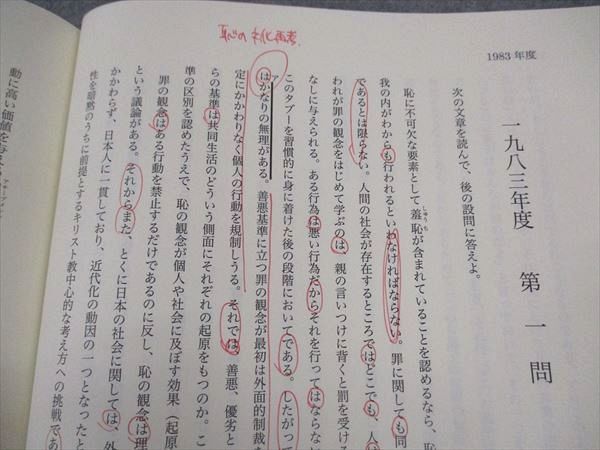 恥の文化再考
1983年度
一九八三年度 第一問
次の文章を読んで、後の設問に答えよ。
恥に不可欠な要素として羞恥が含まれていることを認めるなら、恥
しゅうち
我の内がわからも行われるといわなければならない。罪に関しても同
であるとは限らない。人間の社会が存在するところではどこでも、人
われが罪の観念をはじめて学ぶのは、親の言いつけに背くと罰を受ける
なしに与えられる。ある行為は悪い行為だからそれを行ってはならない
このタブーを習慣的に身に着けた後の段階においてである。したがって
ア
はかなりの無理がある。善悪基準に立つ罪の観念が最初は外面的制裁
定にかかわりなく個人の行動を規制しうる。それでは、善悪、優劣と
らの基準は共同生活のどういう側面にそれぞれの起原をもつのか。こ
準の区別を認めたうえで、恥の観念が個人や社会に及ぼす効果（起原
罪の観念はある行動を禁止するだけであるのに反し、恥の観念は理
という議論がある。それからまた、とくに日本の社会に関しては、外
かかわらず、日本人に一貫しており、近代化の動因の一つとなったと
性を暗黙のうちに前提とするキリスト教中心的な考え方への挑戦であ
動に高い価値を与える